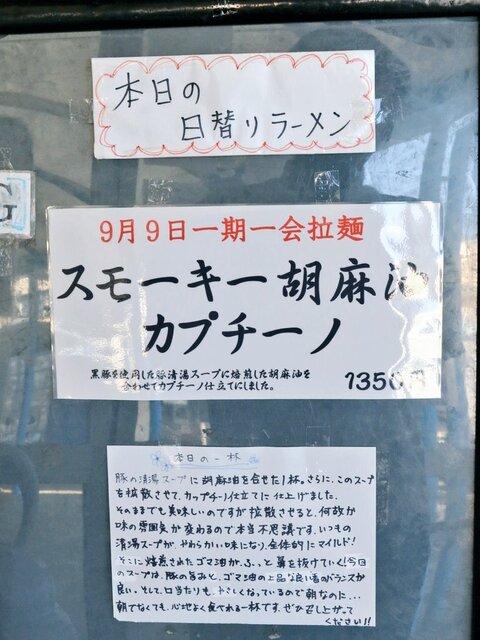 本日の
日替りラーメン
9月9日一期一会拉麺
スモーキー胡麻油
カプチーノ
黒豚を使用した豚清湯スープに焙煎した胡麻油を
合わせてカプチーノ仕立てにしました。
1350円
本日の一杯
豚の清湯スープに胡麻油を合せた1杯。さらに、このスープ
を拡散させて、カップチーノ仕立てに仕上げました。
そのままでも美味しいのですが拡散させると、何故か
味の雰囲気が変わるので本当不思議です。いつもの
清湯スープが、やわらかい味になり、全体的にマイルド!
そこに焙煎されたゴマ油が、ふ、っと鼻を抜けていく!今回
のスープは、豚の旨みと、ゴマ油の上品な良い香のバランスが
良い。そして、口当たりも、やさしくなっているので朝なのに...
朝でなくても、心地よく食べれる一杯です。ぜひ召し上がって
ください!!